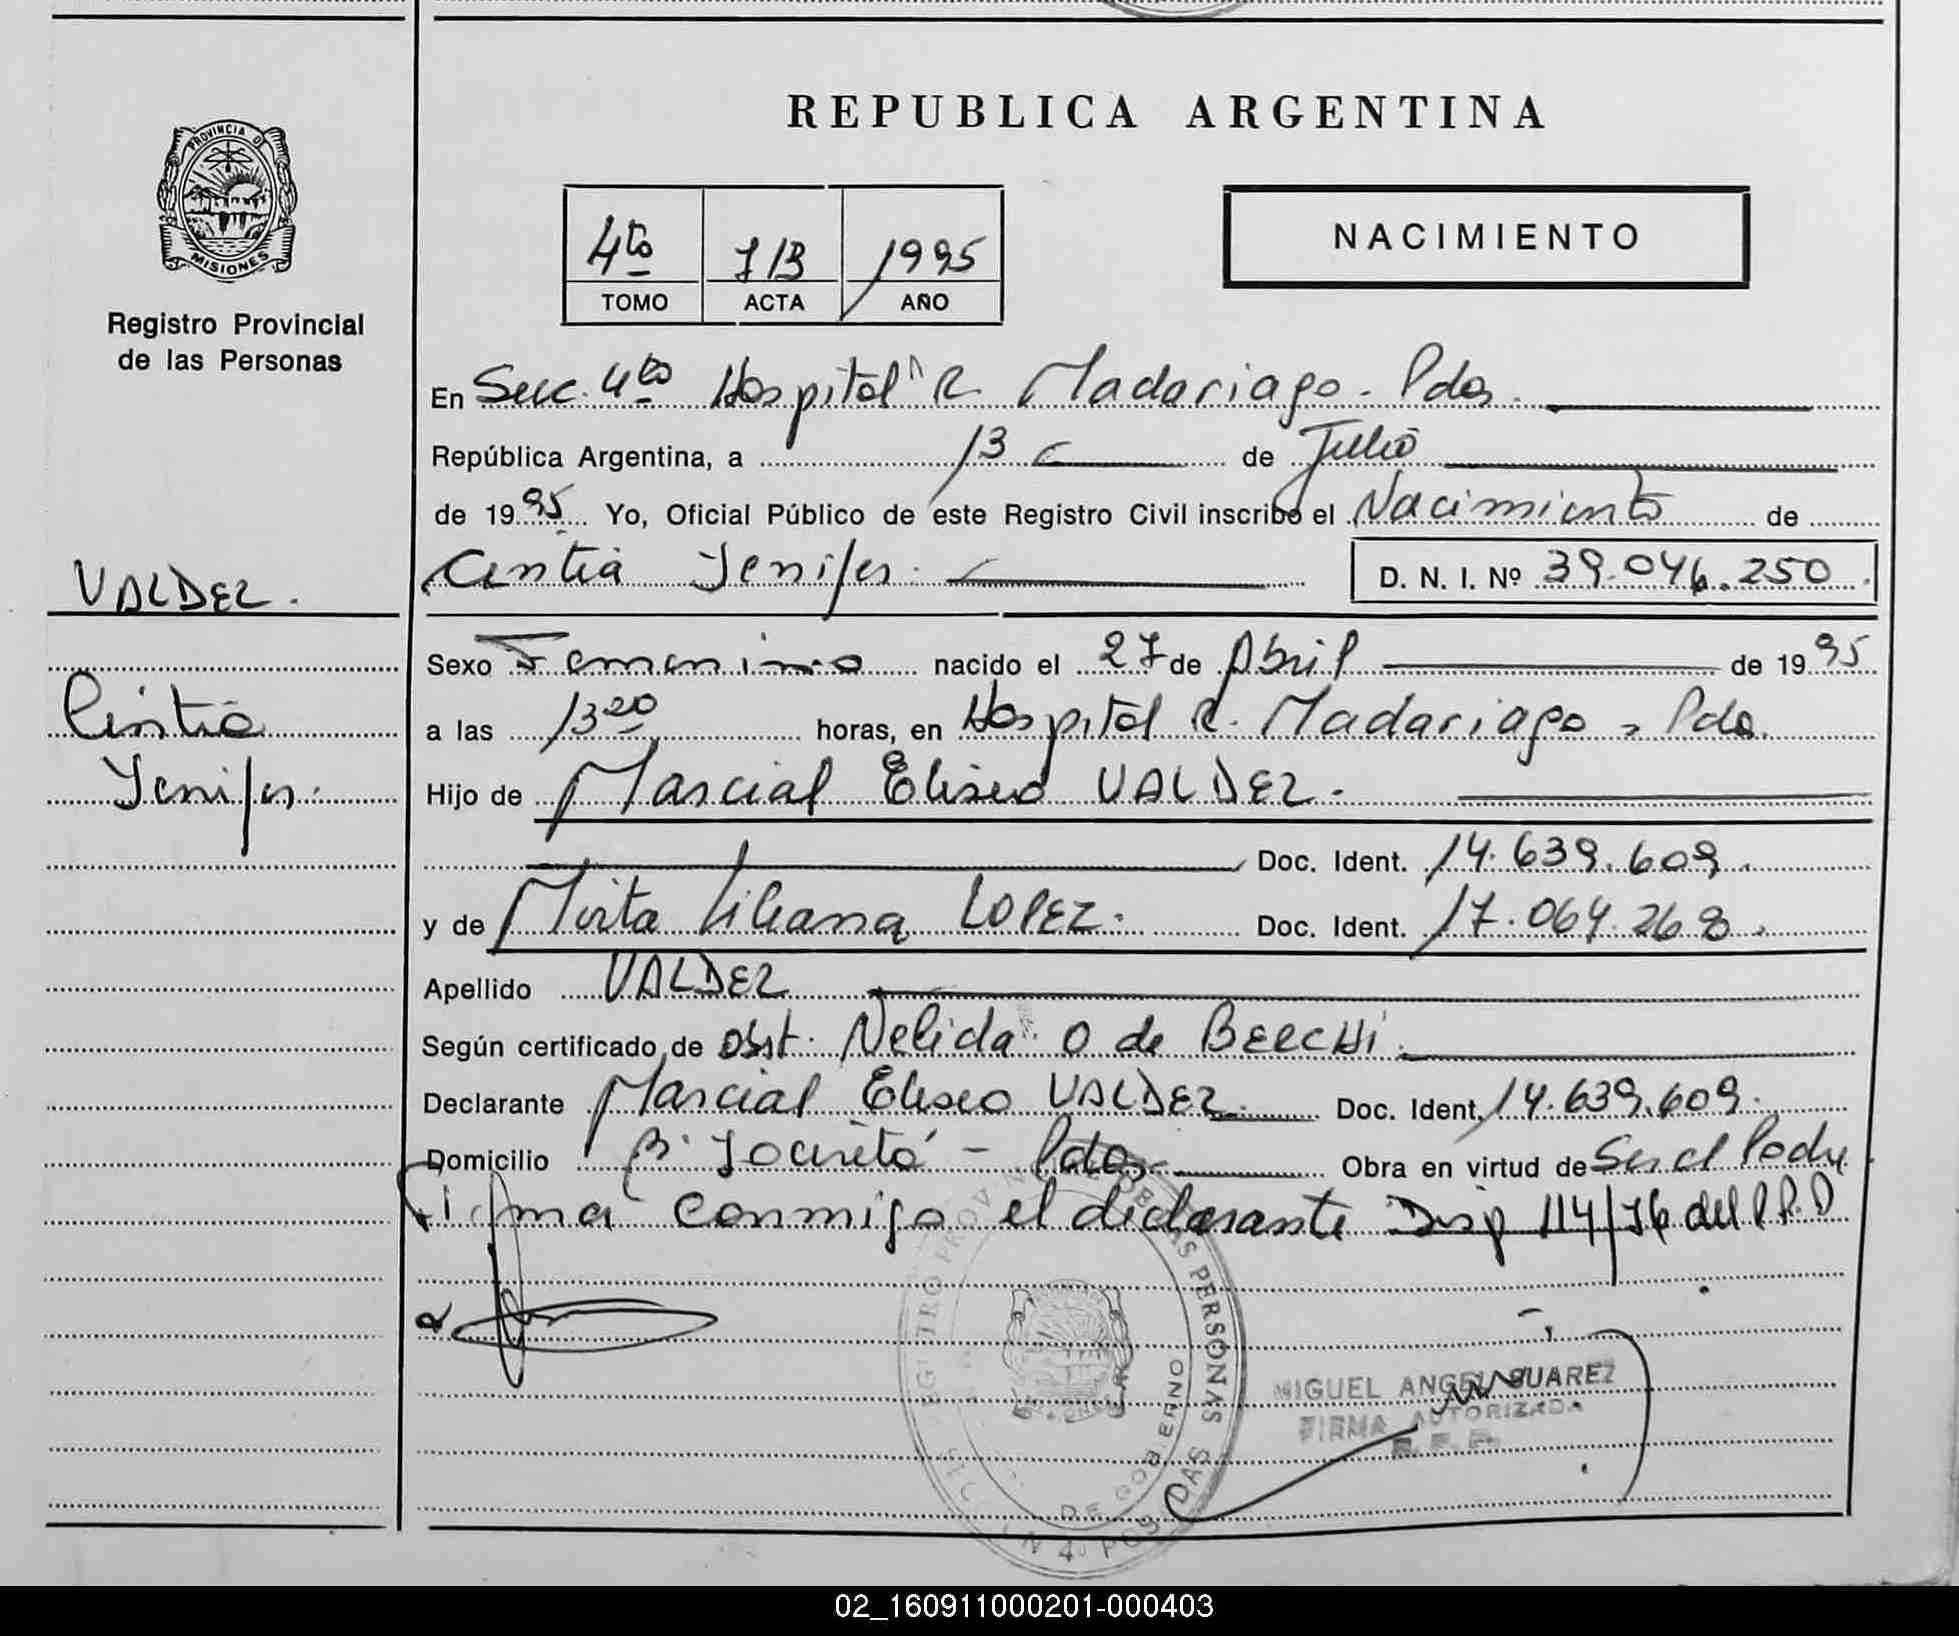 REPUBLICA ARGENTINA
PROVINCIA D
MISIONES
Registro Provincial
de las Personas
4to 713 1995
TOMO ACTA AÑO
NACIMIENTO
En Secc. 4ta Hospital R Madariaga - Pdas.
República Argentina, a 13 de Julio
de 1995 Yo, Oficial Público de este Registro Civil inscribo el Nacimiento de
Cintia Jenifer. D. N. I. Nº 39.046.250.
VALDEZ.
Cintia
Jenifer.
Sexo Femenino nacido el 27 de Abril de 1995
a las 13 20 horas, en Hospital R. Madariaga - Pdas.
Hijo de Marcial Eliseo VALDEZ.
Doc. Ident. 14.639.609.
y de Mirta Liliana LOPEZ. Doc. Ident. 17.064.268.
Apellido VALDEZ
Según certificado de Obst. Nelida O de
Declarante Marcial Eliseo VALDEZ. Doc. Ident. 14.639.609.
Domicilio Bº - Pdas. Obra en virtud de Ser el Padre
Firma conmigo el declarante Disp 114/76 del R.P.P
REGISTRO PROVIN DE LAS PERSONAS
DE GOBIERNO
N 4ª POSADAS
MIGUEL ANGEL SUAREZ
FIRMA AUTORIZADA
R. P. P.
02_160911000201-000403